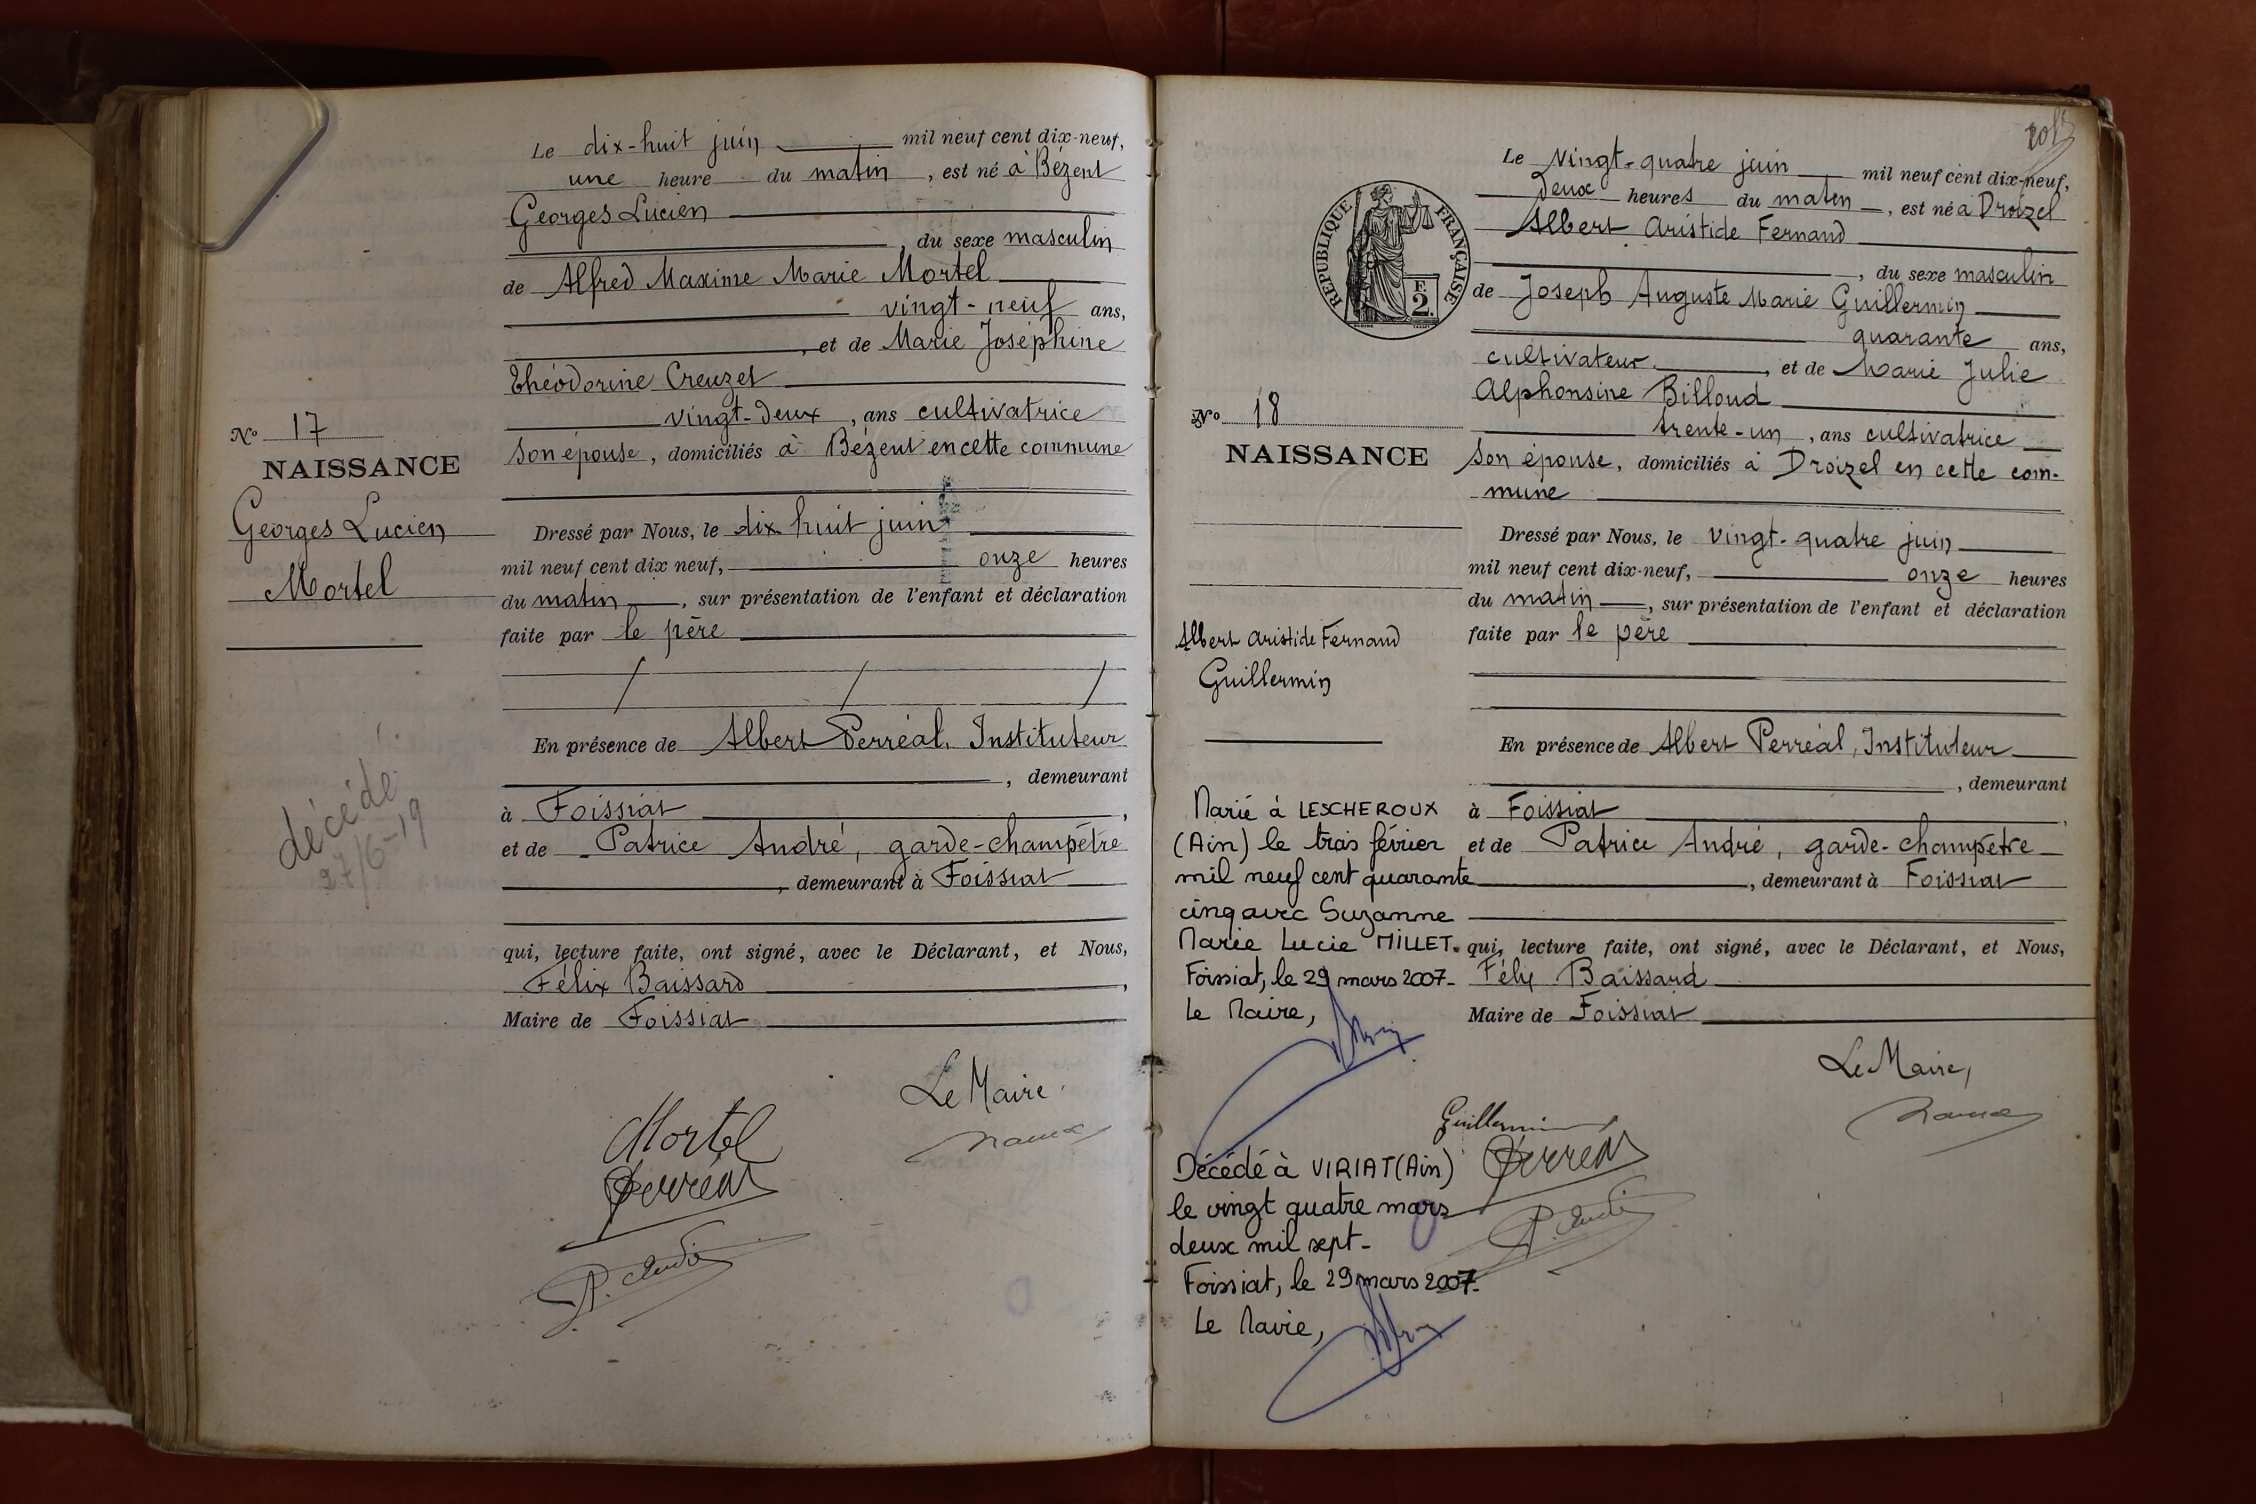 Le dix-huit juin mil neuf cent dix-neuf,
une heure du matin, est né à Bézent
Georges Lucien
, du sexe masculin
de Alfred Maxime Marie Mortel
vingt-neuf ans,
, et de Marie Joséphine
Théodorine Creuzet
vingt-deux, ans cultivatrice
son épouse, domiciliés à Bézent en cette commune
No 17
NAISSANCE
Georges Lucien
Mortel
Dressé par Nous, le dix huit juin
mil neuf cent dix neuf, onze heures
du matin, sur présentation de l'enfant et déclaration
faite par le père
En présence de Albert Perréal, Instituteur
, demeurant
à Foissiat,
et de Patrice André, garde-champêtre
, demeurant à Foissiat
décédé
27/6-19
qui, lecture faite, ont signé, avec le Déclarant, et Nous,
Félix Baissard,
Maire de Foissiat
Le Maire
Mortel
Perréal
P. André
Le Vingt-quatre juin mil neuf cent dix-neuf,
Deux heures du matin, est né à Droizel
Albert Aristide Fernand
, du sexe masculin
de Joseph Auguste Marie Guillermin
quarante ans,
cultivateur, et de Marie Julie
Alphonsine Billoud
trente-un, ans cultivatrice
son épouse, domiciliés à Droizel en cette com-
mune
RÉPUBLIQUE FRANÇAISE
F.
2.
No 18
NAISSANCE
Albert Aristide Fernand
Guillermin
Dressé par Nous, le vingt-quatre juin
mil neuf cent dix-neuf, onze heures
du matin, sur présentation de l'enfant et déclaration
faite par le père
En présence de Albert Perréal, Instituteur
, demeurant
à Foissiat,
et de Patrice André, garde-champêtre
, demeurant à Foissiat
qui, lecture faite, ont signé, avec le Déclarant, et Nous,
Félix Baissard
Maire de Foissiat
Le Maire,
Guillermin
Perréal
P. André
Marié à LESCHEROUX
(Ain) le trois février
mil neuf cent quarante
cinq avec Suzanne
Marie Lucie MILLET.
Foissiat, le 29 mars 2007-
Le Maire,
Décédé à VIRIAT (Ain)
le vingt quatre mars
deux mil sept-
Foissiat, le 29 mars 2007-
Le Maire,